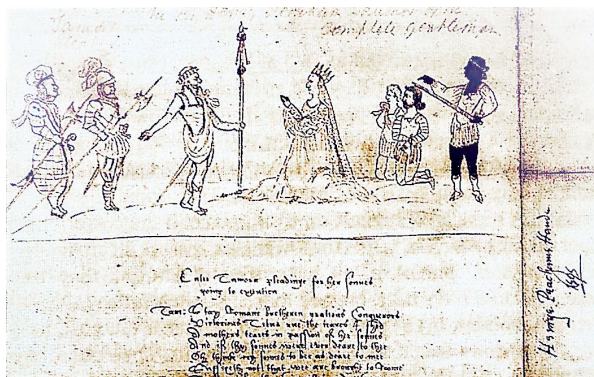 Henry Peacham
Complete Gentleman
Enter Tamora pleadinge for her sonnes
going to execution
Tam: Stay Romane bretheren gratious Conquerors
Victorious Titus rue the teares I shed
A mothers teares in passion of her sonnes
And if thy sonnes were ever deare to thee
Oh thinke my sonnes to bee as deare to mee
Suffizeth not that wee are brought to Roome
Henrye Peachams Hande
1595